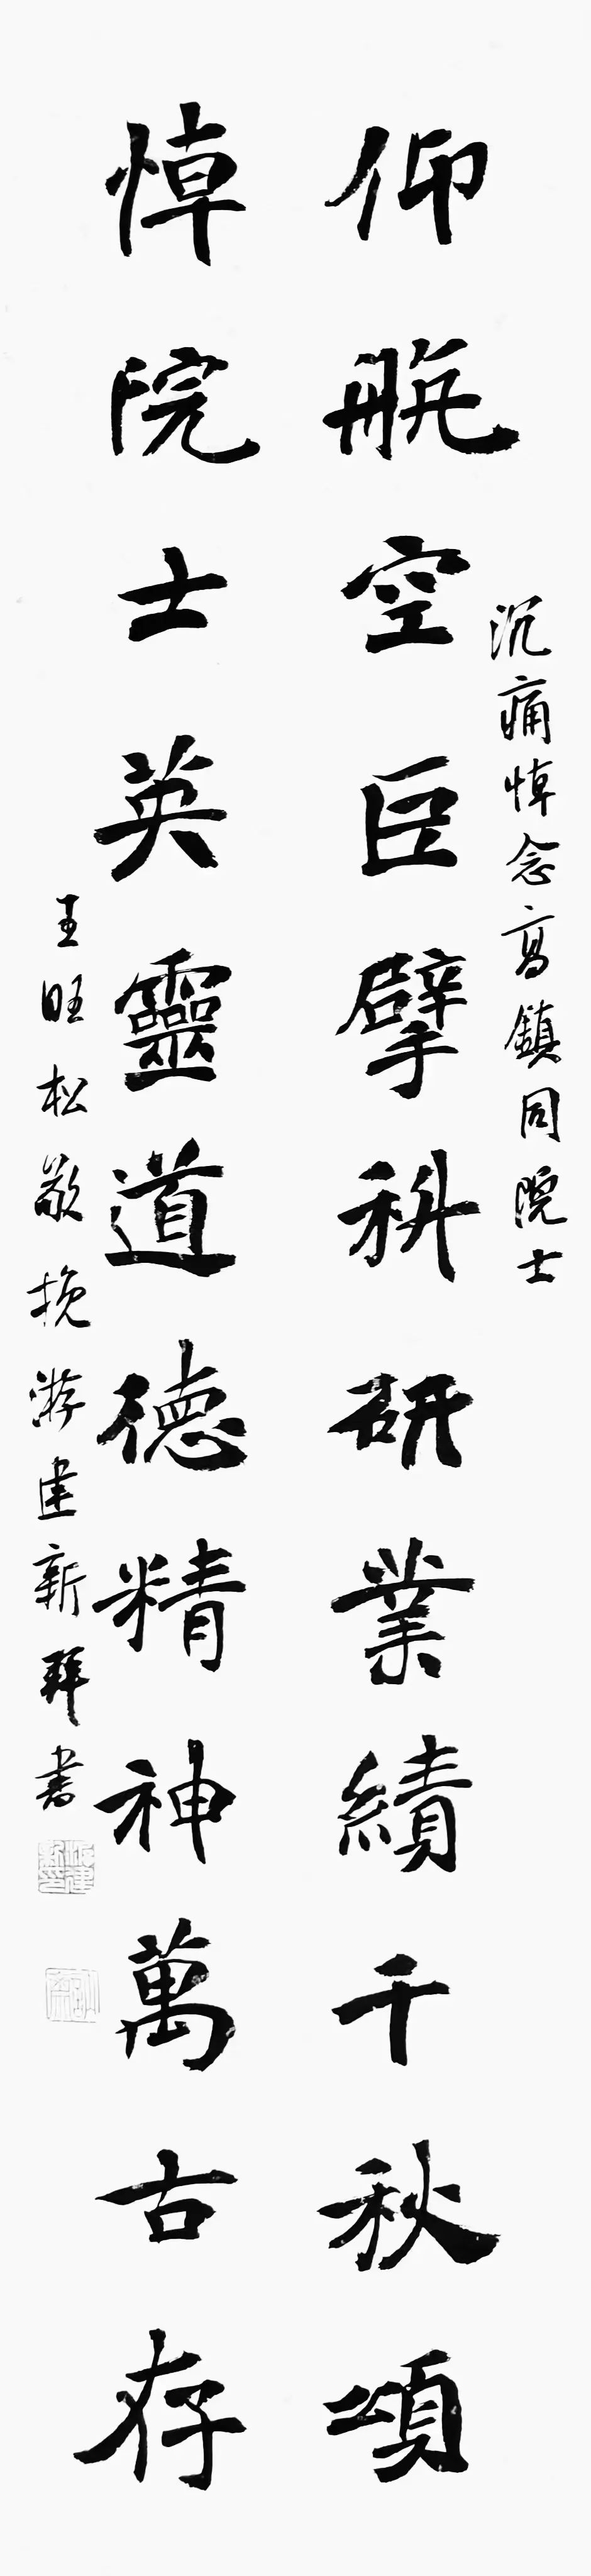 沉痛悼念高鎮同院士
仰航空巨擘科研業績千秋頌
悼院士英靈道德精神萬古存
王旺松敬挽游建新拜書